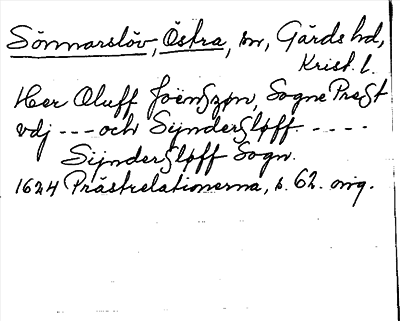 Sönnarslöv, Östra, sn, Gärds hd,
Krist. l.
Her Oluff Joenszøn, Sogne Prest
vdj --- och Sijndersløff -----
Sijndersløff Sogn.
1624 Prästrelationerna, s. 62. orig.